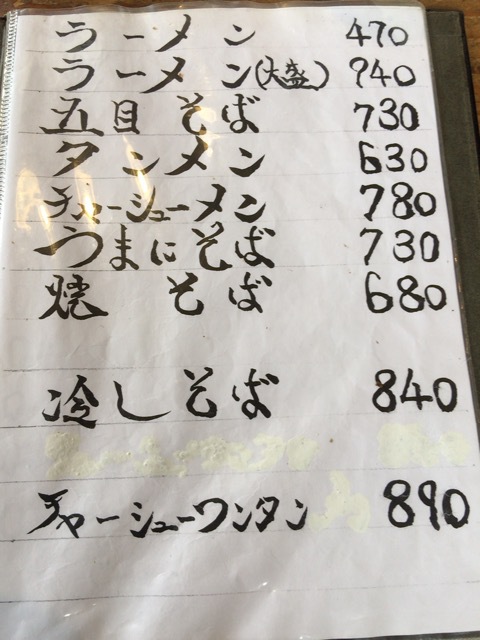 ラーメン 470
ラーメン(大盛) 940
五目そば 730
タンメン 630
チャーシューメン 780
うまにそば 730
焼そば 680
冷しそば 840
チャーシューワンタン 890